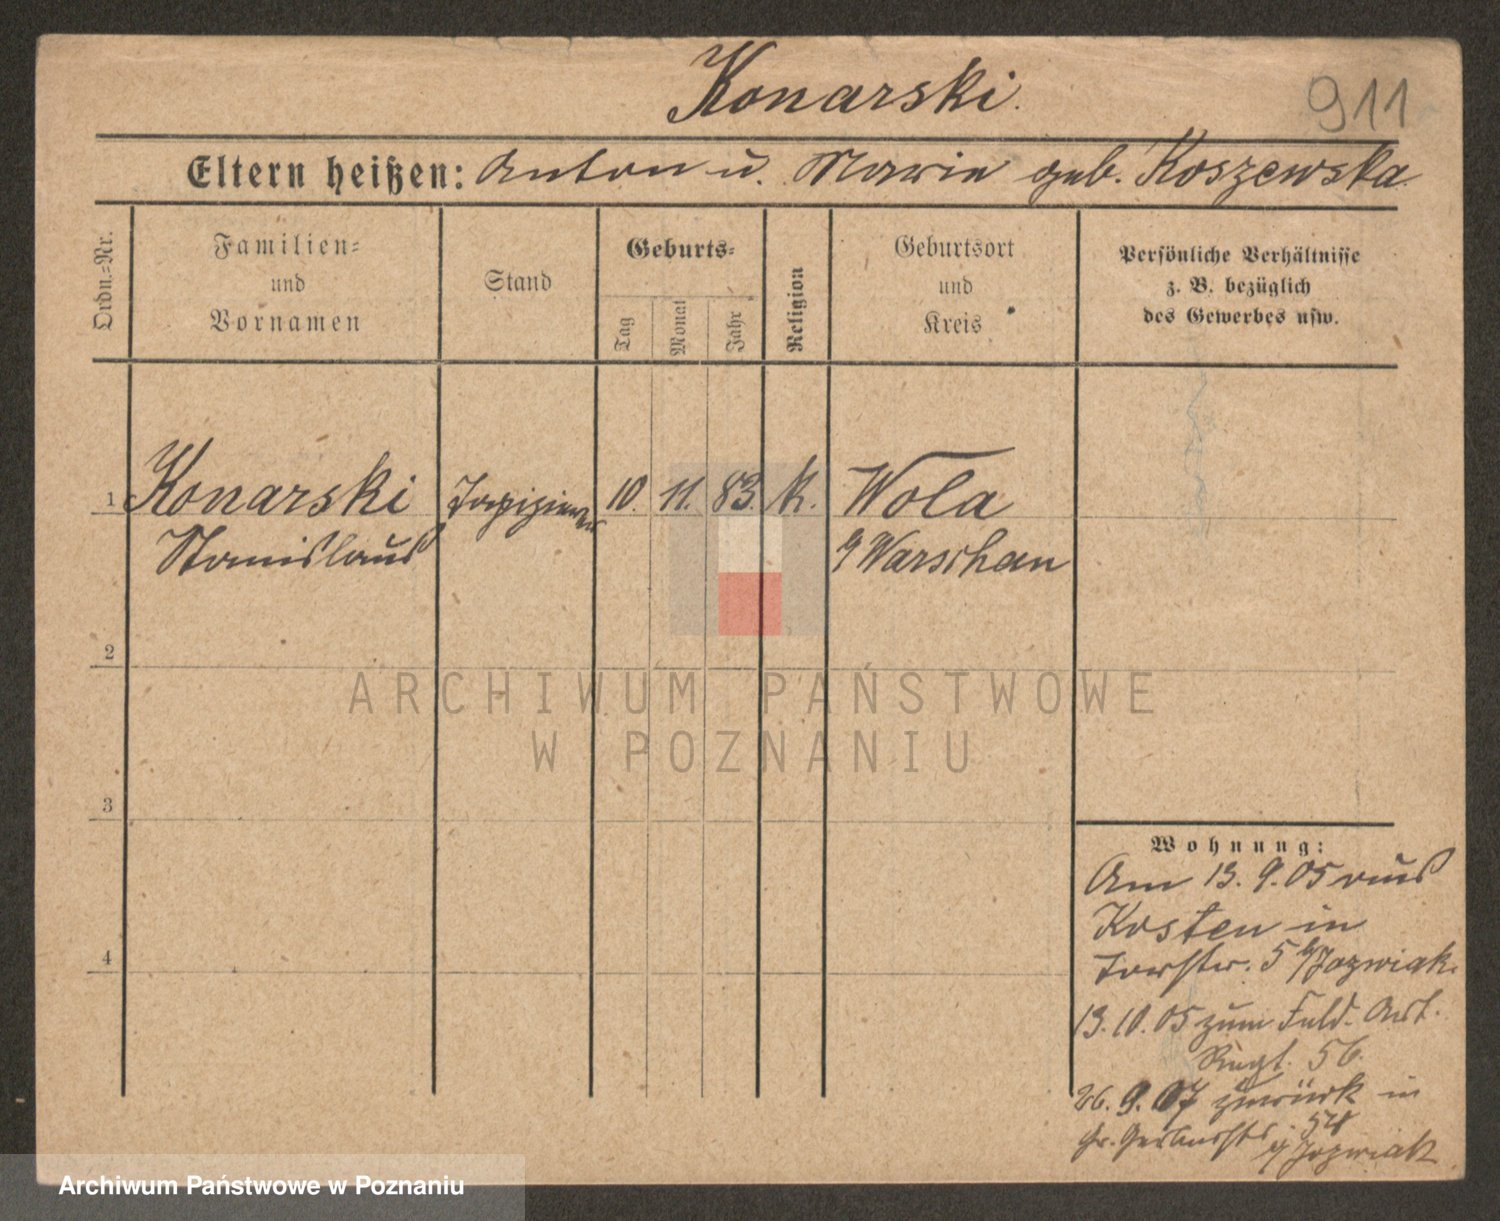 Konarski.
911
Eltern heißen: Anton u. Marie geb. Koszewska
Ordn.=Nr.
Familien=
und
Vornamen
Stand
Geburts=
Tag
Monat
Jahr
Religion
Geburtsort
und
Kreis
Persönliche Verhältnisse
z. B. bezüglich
des Gewerbes usw.
1
Konarski
Stanislaus
Tapezierer
10.
11.
83.
k.
Wola
Warschau
2
3
4
Wohnung:
Am 13. 9. 05 aus
Kosten in
Torstr. 5 b/Jozwiak.
13. 10. 05 zum Feld-Art.
Regt. 56.
26. 9. 07 zurück in
Gr. Gerberstr. 54
Jozwiak
ARCHIWUM PAŃSTWOWE
W POZNANIU
Archiwum Państwowe w Poznaniu